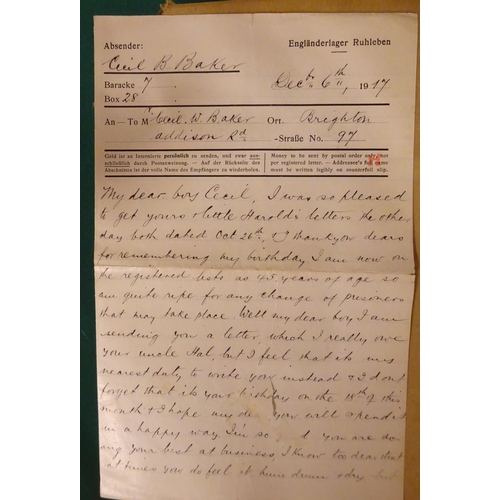 Absender:
Engländerlager Ruhleben
Cecil B. Baker
Baracke 7
Box 28
Decbr 6th, 1917
An — To Mr Cecil W. Baker Ort. Brighton
Addison Rd -Straße No. 97
Geld ist an Internierte persönlich zu senden, und zwar ausschließlich durch Postanweisung. — Auf der Rückseite des Abschnittes ist der volle Name des Empfängers zu wiederholen.
Money to be sent by postal order only, not per registered letter. — Addressee's full name must be written legibly on counterfoil slip.
My dear boy Cecil, I was so pleased
to get yours & little Harold's letters the other
day both dated Oct 26th, & I thank you dears
for remembering my birthday I am now on
the registered lists as 45 years of age so
am quite ripe for any change of prisoners
that may take place Well my dear boy I am
sending you a letter, which I really owe
your uncle Hal, but I feel that its my
nearest duty to write you instead & I dont
forget that its your birthday on the 18th of this
month & I hope my de you will spend it
in a happy way I'm so d you are do
ing your best at business, I know too dear that
at times you do feel it hum drum & dry